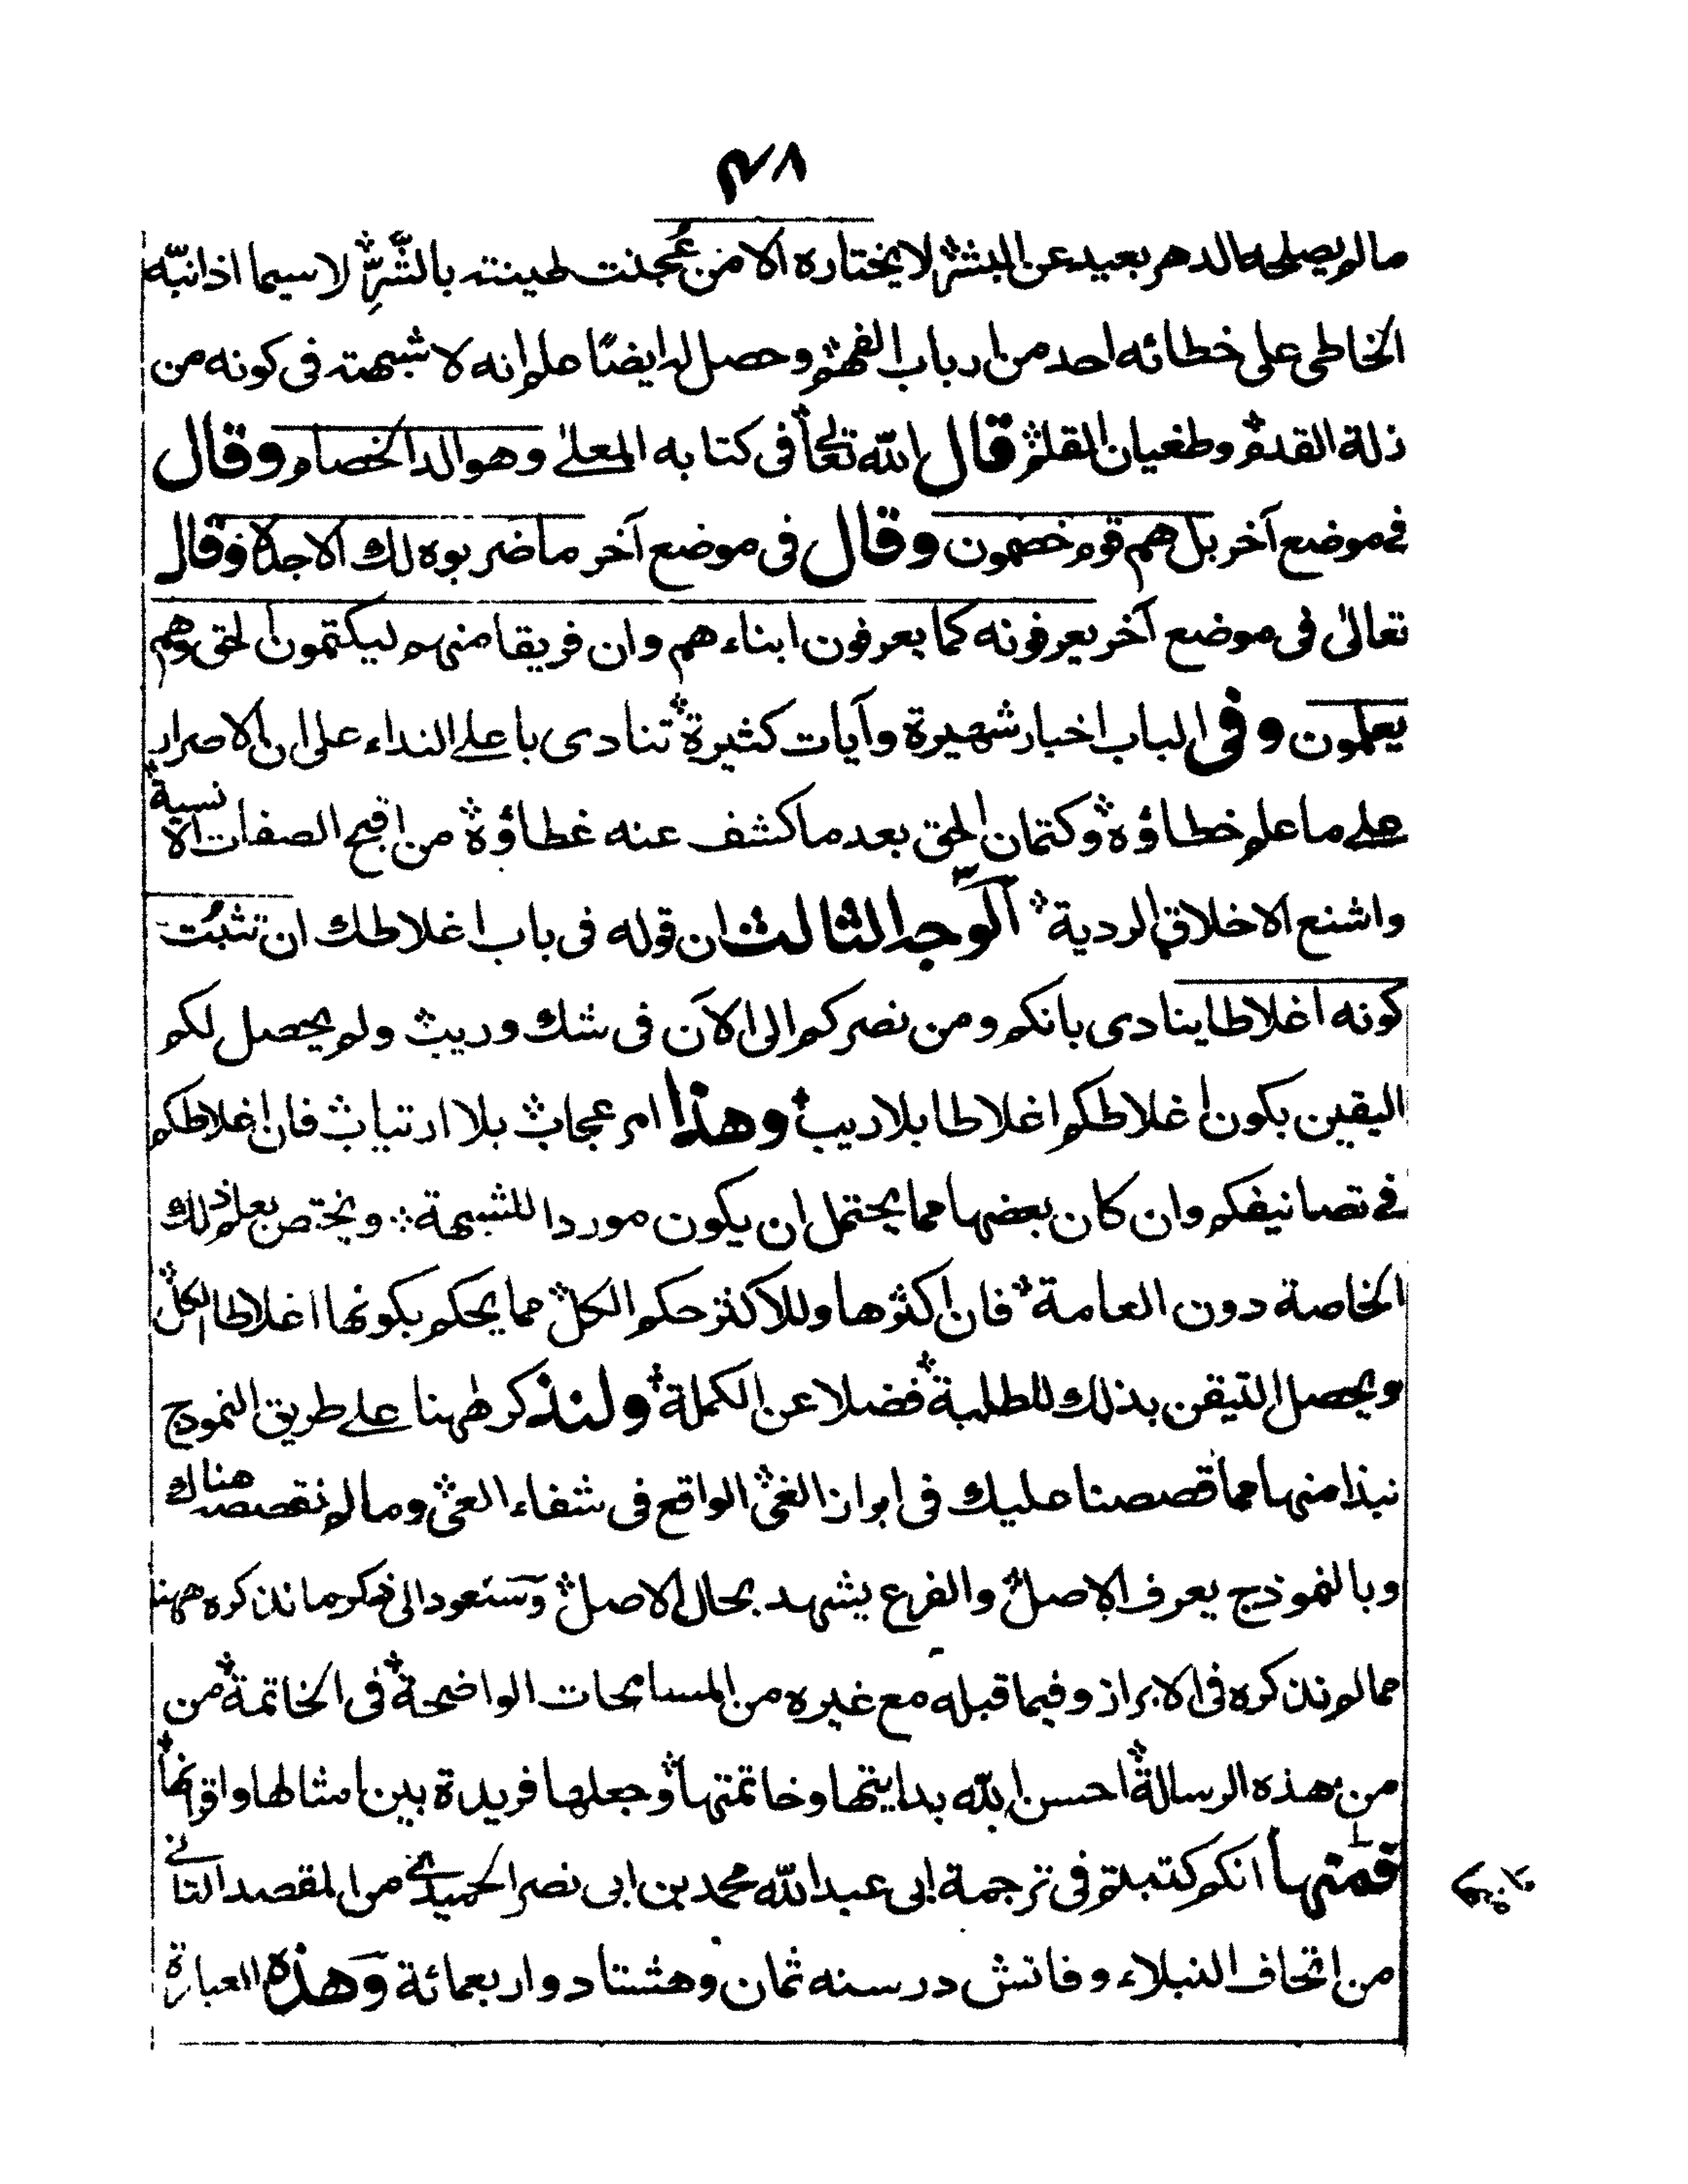 ٤٨
ما لم يصلحه الدهر بعيد عن البشر لا يختاره الا من عُجنت طينته بالشَّرِّ لا سيما اذا نبّه
الخاطى على خطائه احد من ارباب الفهم وحصل له ايضًا علم انه لا شبهة فى كونه من
زلة القدم وطغيان القلم قال الله تعالى فى كتابه المعلى وهو الد الخصام وقال
فى موضع آخر بل هم قوم خصمون وقال فى موضع آخر ما ضربوه لك الا جدلا وقال
تعالى فى موضع آخر يعرفونه كما يعرفون ابناءهم وان فريقا منهم ليكتمون الحق وهم
يعلمون وفى الباب اخبار شهيرة وآيات كثيرة تنادى باعلى النداء على ان الاصرار
على ما علم خطاؤه وكتمان الحق بعد ما كشف عنه غطاؤه من اقبح الصفات الانسية
واشنع الاخلاق الردية الوجه الثالث ان قوله فى باب اغلاطك ان تثبُت
كونه اغلاطا ينادى بانكم ومن نصركم الى الآن فى شك وريب ولم يحصل لكم
اليقين بكون اغلاطكم اغلاطا بلا ريب وهذا امر عجاب بلا ارتياب فان اغلاطكم
فى تصانيفكم وان كان بعضها مما يحتمل ان يكون موردا للشبهة ويختص بعلم ذلك
الخاصة دون العامة فان اكثرها وللاكثر حكم الكل مما يحكم بكونها اغلاطا الكل
ويحصل التيقن بذلك للطلبة فضلا عن الكملة ولنذكر ههنا على طريق النموذج
نبذا منها مما قصصنا عليك فى ابراز الغى الواقع فى شفاء العى وما لم نقصصه هناك
وبالنموذج يعرف الاصل والفرع يشهد بحال الاصل وسنعود الى ذكر ما نذكره ههنا
مما لم نذكره فى الابراز وفيما قبله مع غيره من المسامحات الواضحة فى الخاتمة من
من هذه الرسالة احسن الله بدايتها وخاتمتها وجعلها فريدة بين امثالها واقرانها
فمنها انكم كتبتم فى ترجمة ابى عبد الله محمد بن ابى نصر الحميدى من المقصد الثانى
من اتحاف النبلاء وفاتش در سنه ثمان وهشتاد واربعمائة وهذه العبارة